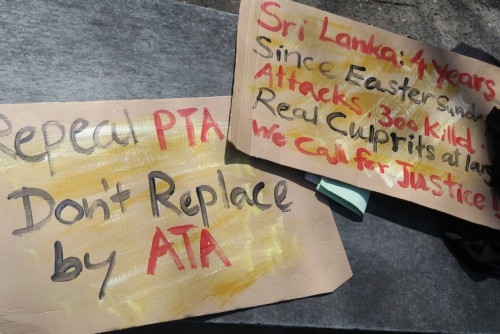 Repeal PTA
Don't Replace
by ATA
Sri Lanka: 4 Years
Since Easter Sunday
Attacks. 300 Killd.
Real Culprits at large
We Call for Justice!